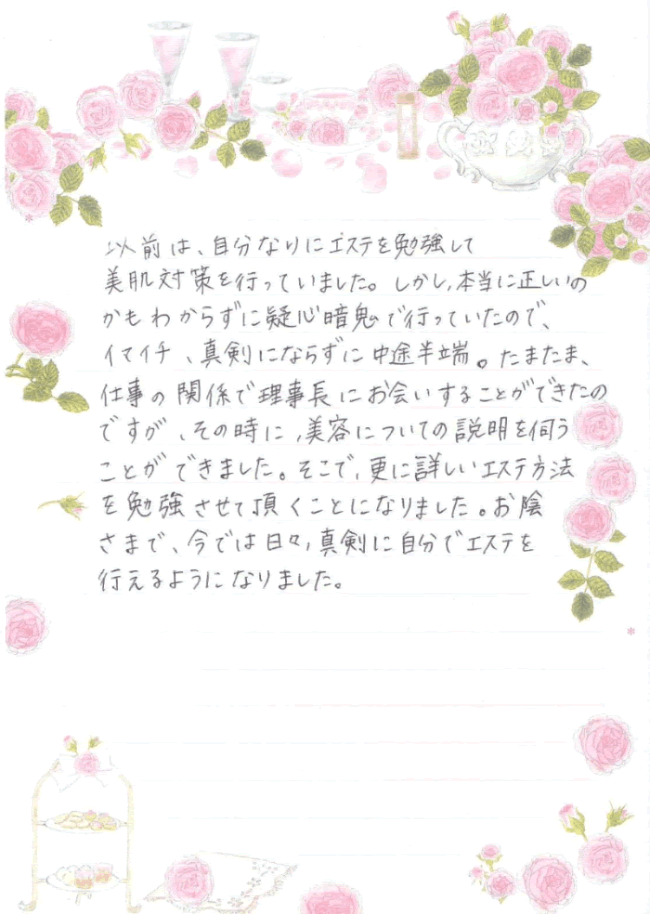 以前は、自分なりにエステを勉強して
美肌対策を行っていました。しかし、本当に正しいの
かもわからずに疑心暗鬼で行っていたので、
イマイチ、真剣にならずに中途半端。たまたま、
仕事の関係で理事長にお会いすることができたの
ですが、その時に、美容についての説明を伺う
ことができました。そこで、更に詳しいエステ方法
を勉強させて頂くことになりました。お陰
さまで、今では日々、真剣に自分でエステを
行えるようになりました。